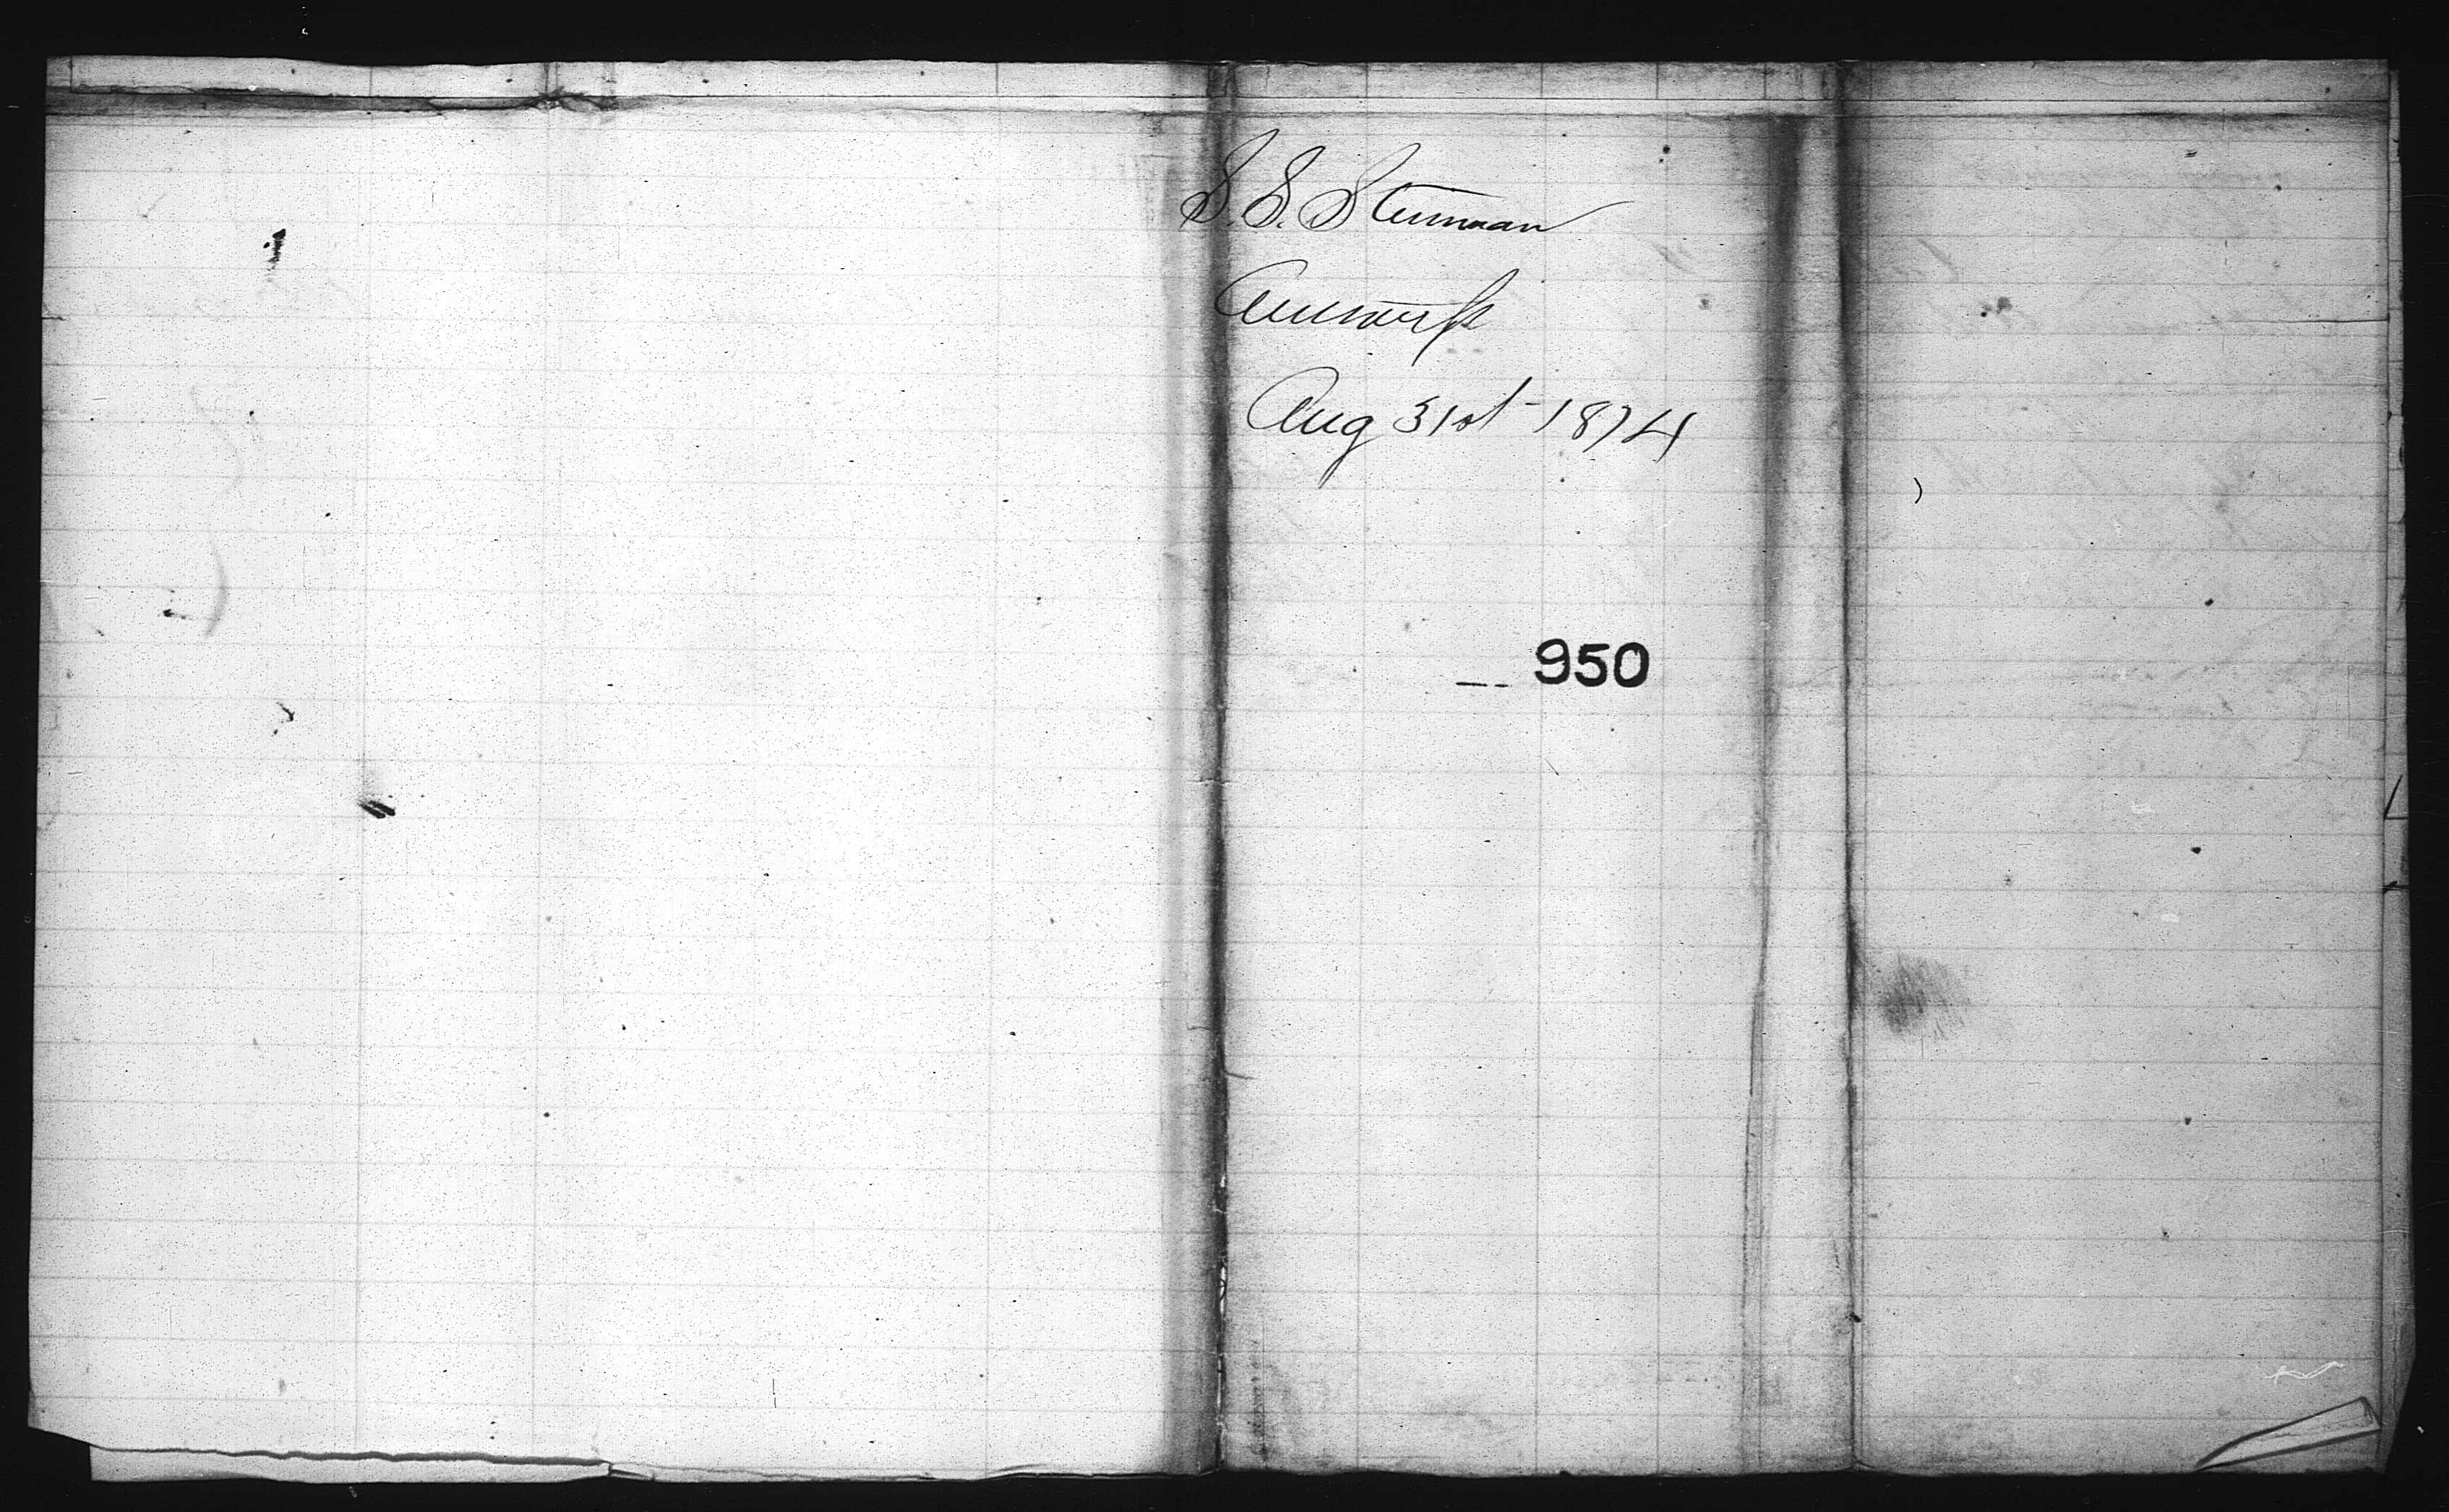 S.S. Steinman
Antwerp
Aug 31st - 1874
950